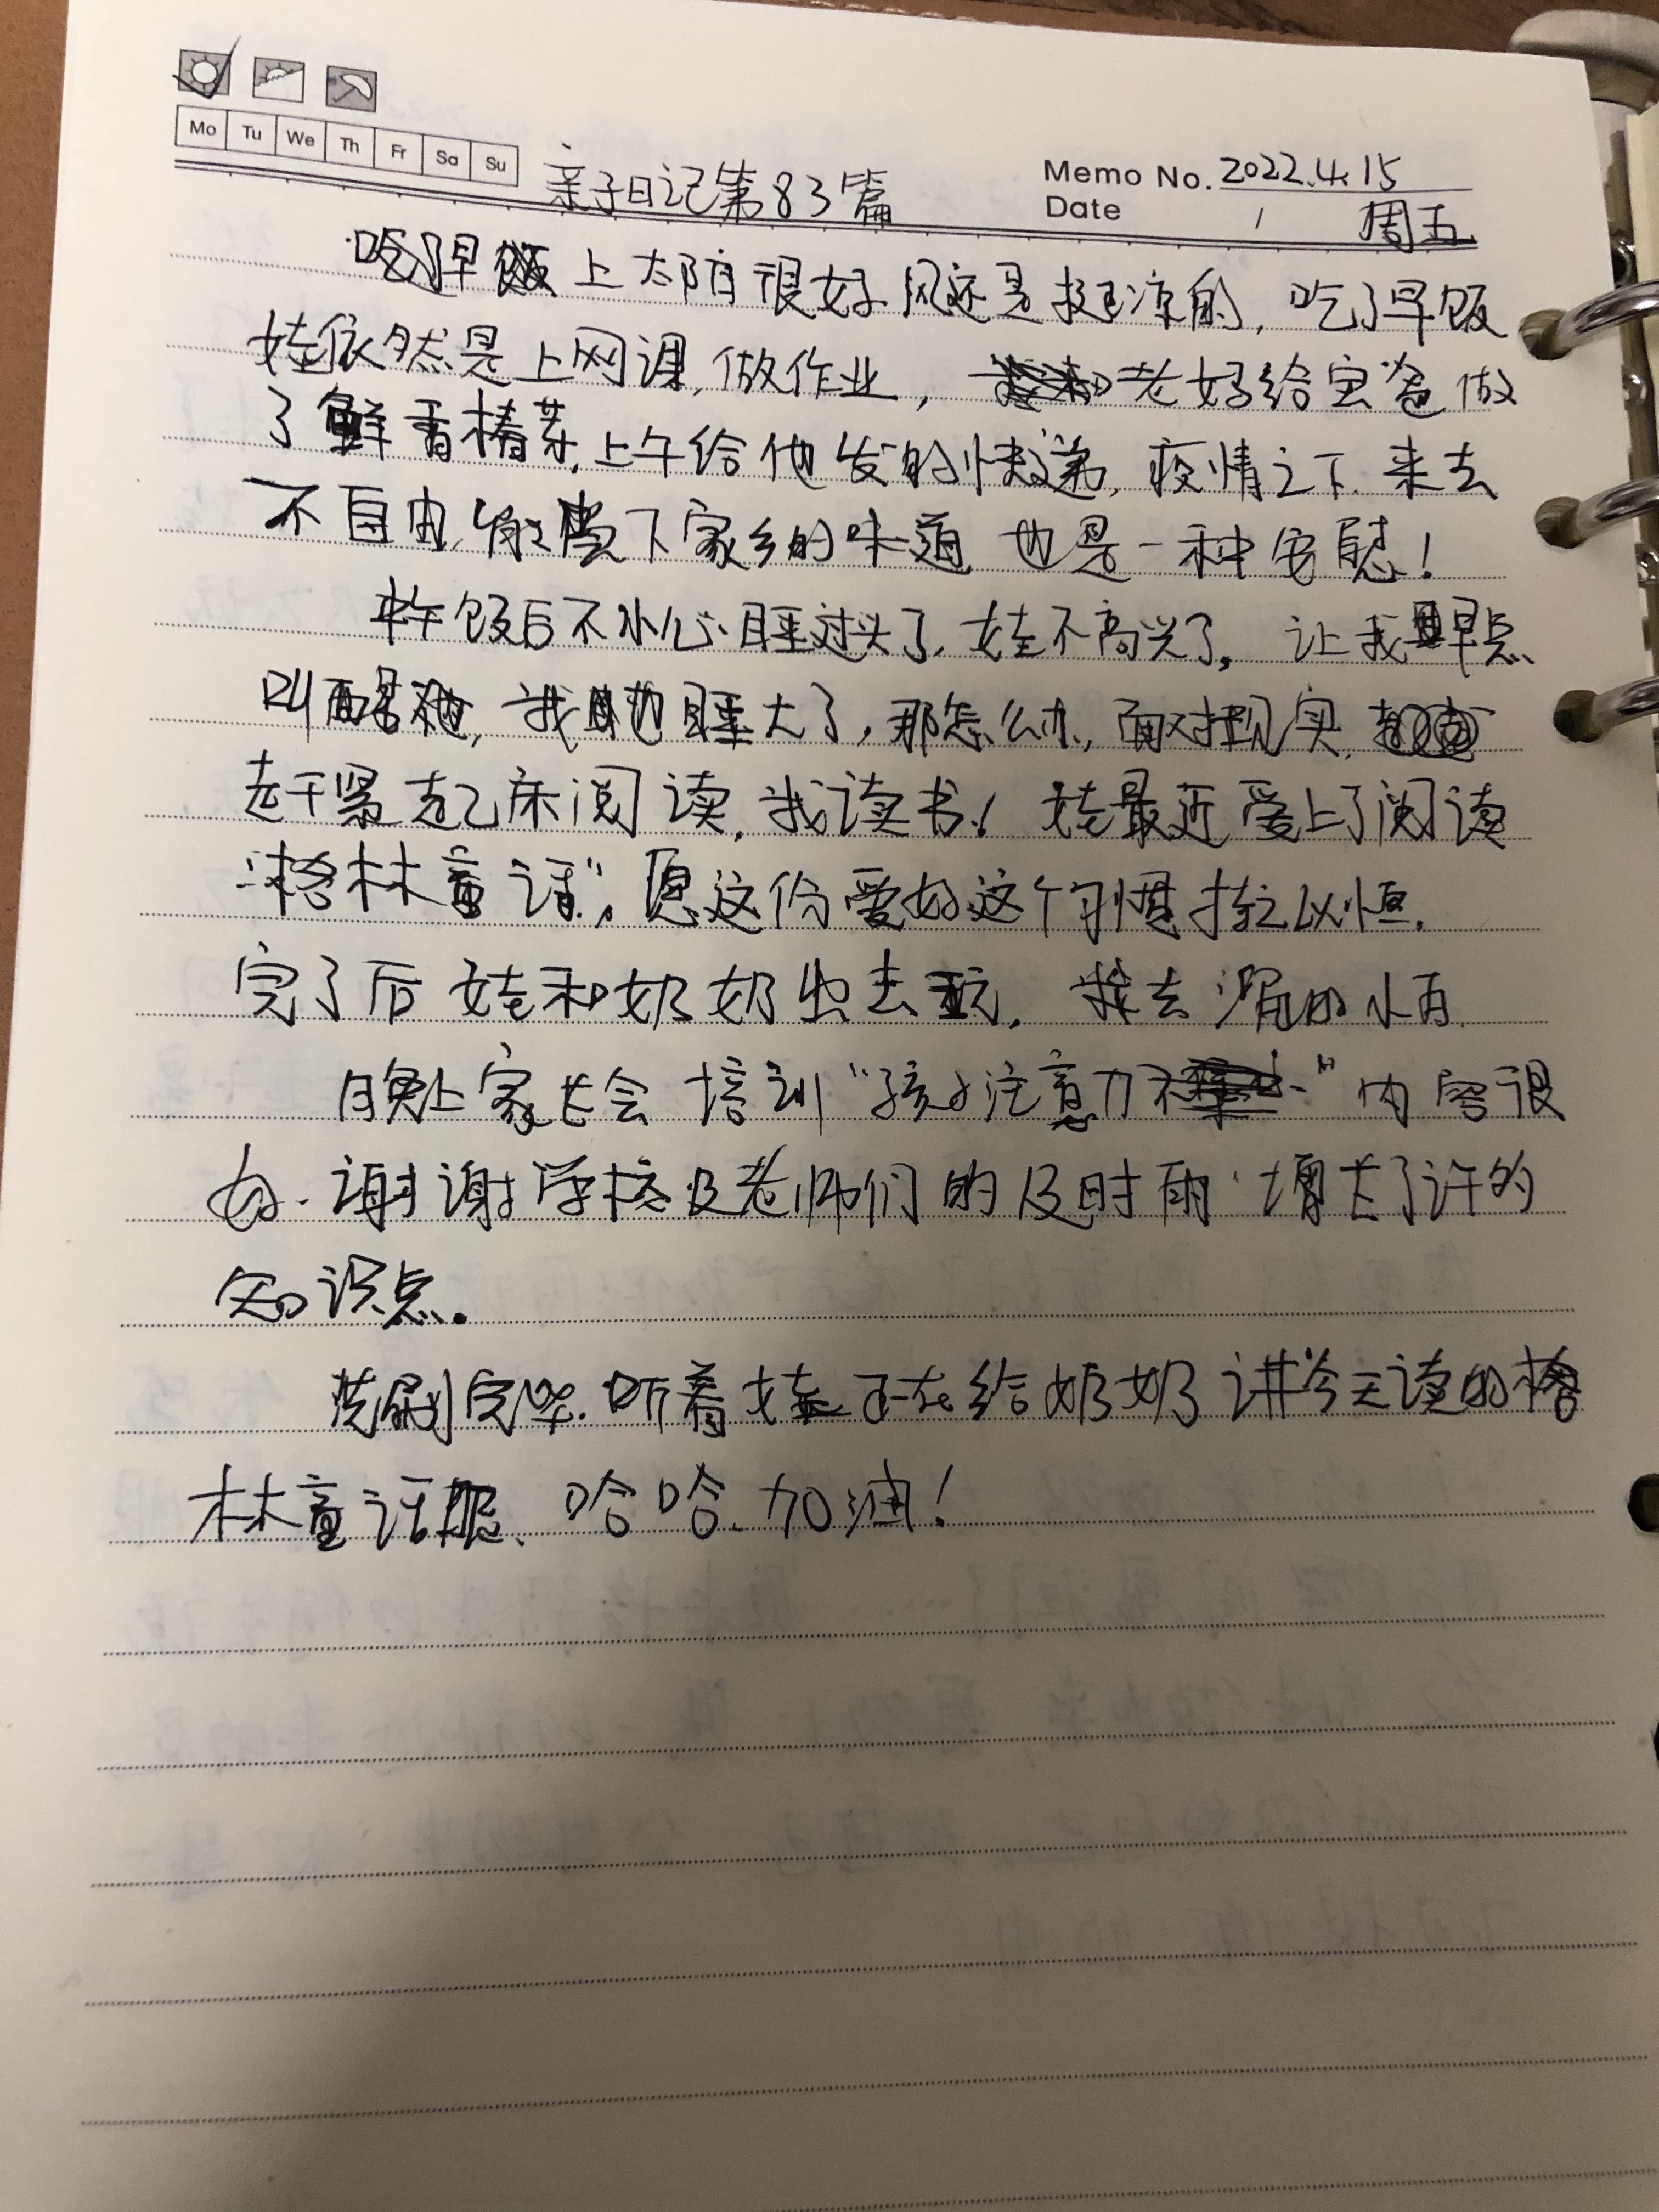 Mo Tu We Th Fr Sa Su
亲子日记第83篇
Memo No. 2022.4.15
Date / 周五
早上太阳很好风还是挺凉的,吃了早饭
娃依然是上网课,做作业,老妈给宝爸做
了鲜香椿芽,上午给他发的快递,疫情之下.来去
不自由,下家乡的味道也是一种安慰!
午饭后不小心睡过头了,娃不高兴了,让我早点
叫醒她,我也睡大了,那怎么办,面对现实,
赶紧起床阅读,我读书!娃最近爱上了阅读
“格林童话”,愿这份爱好这个习惯持之以恒.
完了后娃和奶奶出去玩,我去的小百
晚上家长会培训“孩子注意力不”内容很
好.谢谢学校及老师们的及时雨.增长了许多
知识点.
洗刷完毕.听着娃正在给奶奶讲今天读的格
林童话呢、哈哈、加油!